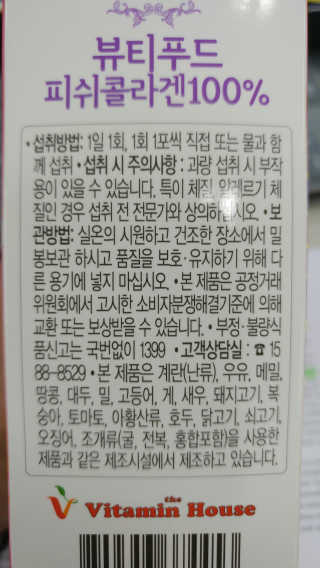 뷰티푸드
피쉬콜라겐100%
• 섭취방법: 1일 1회, 1회 1포씩 직접 또는 물과 함
께 섭취 • 섭취 시 주의사항 : 과량 섭취 시 부작
용이 있을 수 있습니다. 특이 체질, 알레르기 체
질인 경우 섭취 전 전문가와 상의하십시오. • 보
관방법: 실온의 시원하고 건조한 장소에서 밀
봉보관 하시고 품질을 보호·유지하기 위해 다
른 용기에 넣지 마십시오. • 본 제품은 공정거래
위원회에서 고시한 소비자분쟁해결기준에 의해
교환 또는 보상받을 수 있습니다. • 부정·불량식
품신고는 국번없이 1399 • 고객상담실 : ☎ 15
88-8529 • 본 제품은 계란(난류), 우유, 메밀,
땅콩, 대두, 밀, 고등어, 게, 새우, 돼지고기, 복
숭아, 토마토, 아황산류, 호두, 닭고기, 쇠고기,
오징어, 조개류(굴, 전복, 홍합포함)을 사용한
제품과 같은 제조시설에서 제조하고 있습니다.
the
Vitamin House